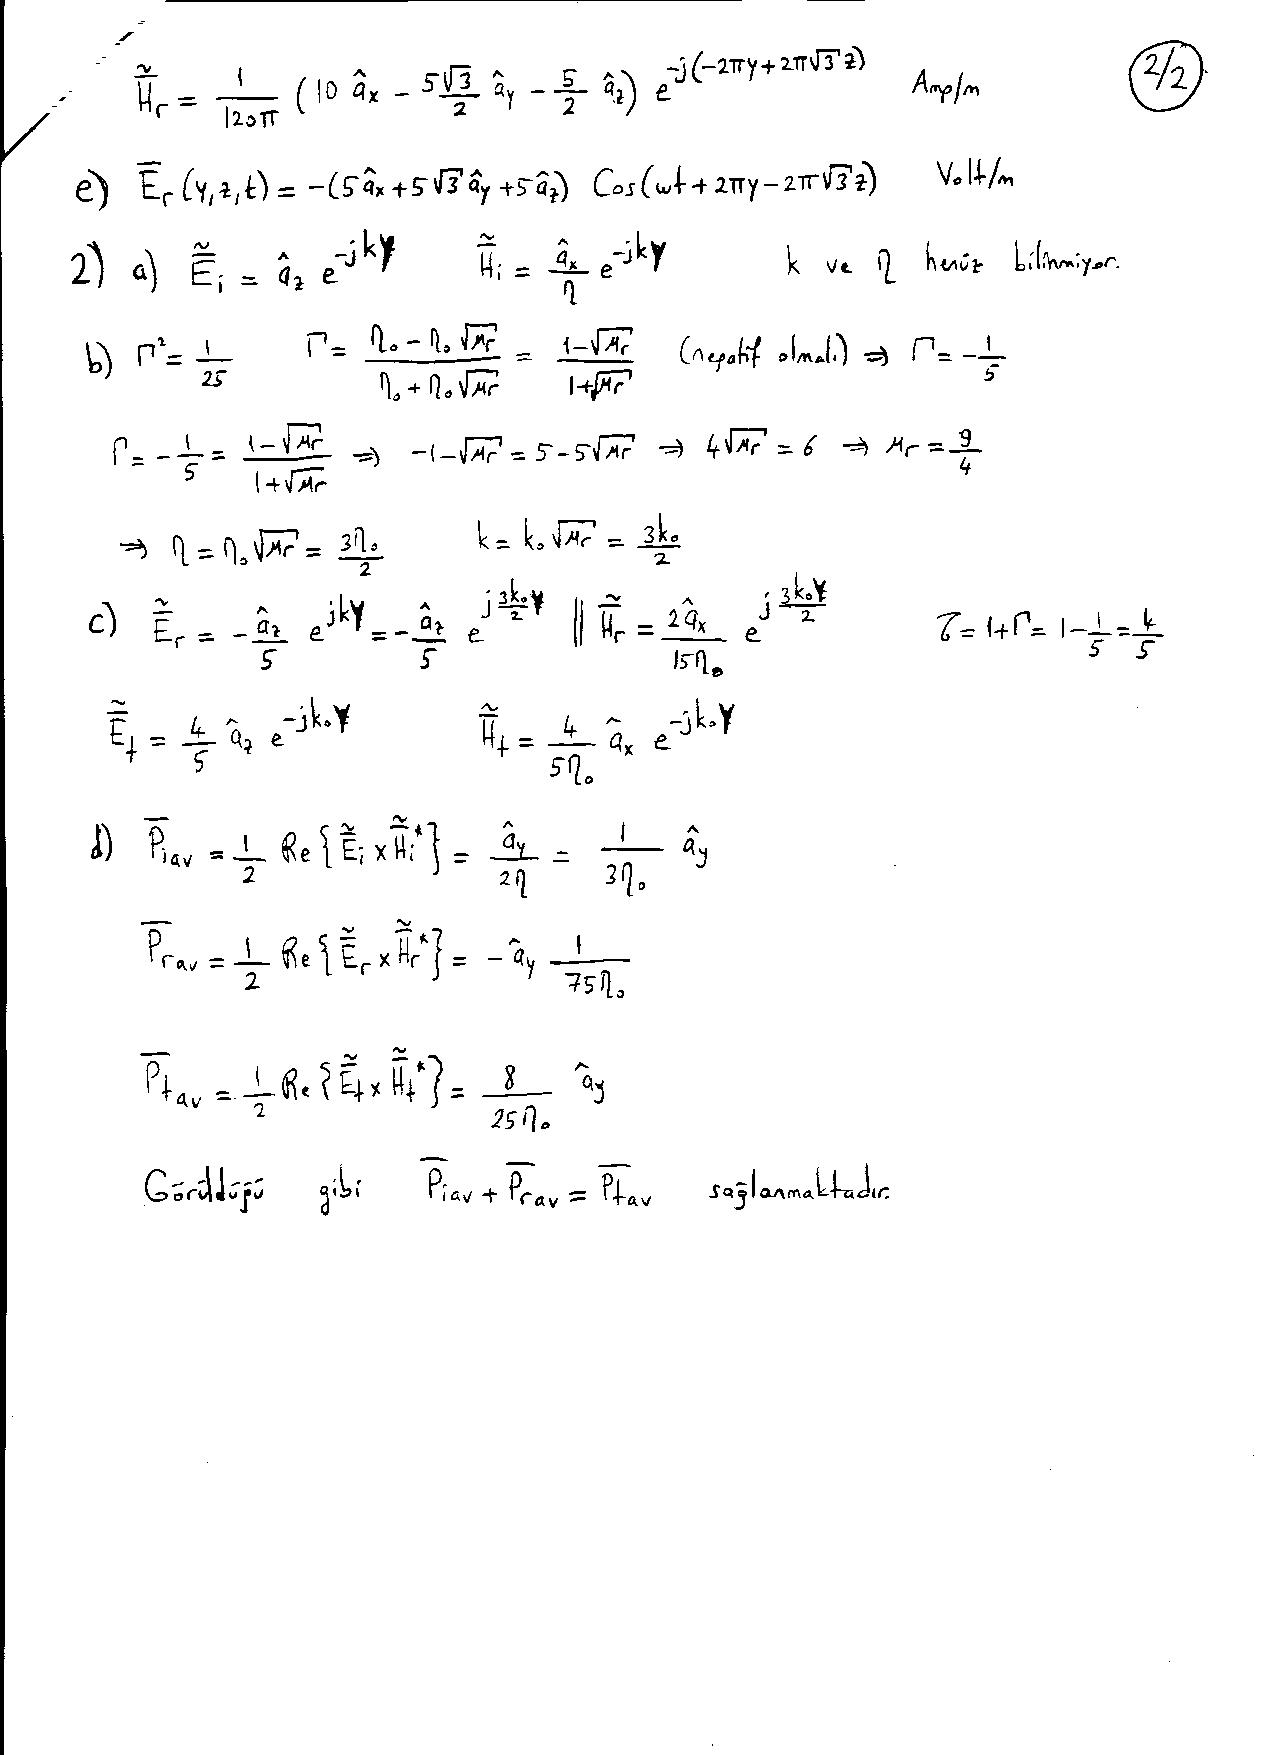 H̃̄r = 1/120π (10 âx − 5√3/2 ây − 5/2 âz) e^{-j(-2πy+2π√3 z)} Amp/m (2/2)
e) Ēr(y,z,t) = -(5âx+5√3 ây+5âz) Cos(ωt+2πy−2π√3 z) Volt/m
2) a) Ẽ̄i = âz e^{-jky} H̃̄i = âx/η e^{-jky} k ve η henüz bilinmiyor.
b) Γ² = 1/25 Γ = (η₀−η₀√μr)/(η₀+η₀√μr) = (1−√μr)/(1+√μr) (negatif olmalı) ⇒ Γ = −1/5
Γ = −1/5 = (1−√μr)/(1+√μr) ⇒ −1−√μr = 5−5√μr ⇒ 4√μr = 6 ⇒ μr = 9/4
⇒ η = η₀√μr = 3η₀/2 k = k₀√μr = 3k₀/2
c) Ẽ̄r = −âz/5 e^{jky} = −âz/5 e^{j3k₀y/2} || H̃̄r = 2âx/15η₀ e^{j3k₀y/2} τ = 1+Γ = 1−1/5 = 4/5
Ẽ̄t = 4/5 âz e^{-jk₀y} H̃̄t = 4/5η₀ âx e^{-jk₀y}
d) P̄iav = 1/2 Re{Ẽ̄i × H̃̄i*} = ây/2η = 1/3η₀ ây
P̄rav = 1/2 Re{Ẽ̄r × H̃̄r*} = −ây 1/75η₀
P̄tav = 1/2 Re{Ẽ̄t × H̃̄t*} = 8/25η₀ ây
Görüldüğü gibi P̄iav + P̄rav = P̄tav sağlanmaktadır.